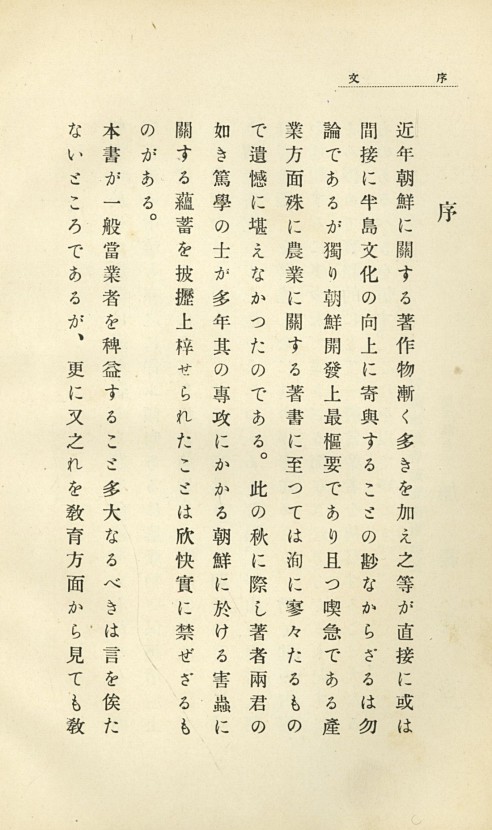 序文
序
近年朝鮮に關する著作物漸く多きを加え之等が直接に或は
間接に半島文化の向上に寄與することの尠なからざるは勿
論であるが獨り朝鮮開發上最樞要であり且つ喫急である產
業方面殊に農業に關する著書に至つては洵に寥々たるもの
で遺憾に堪えなかつたのである。此の秋に際し著者兩君の
如き篤學の士が多年其の專攻にかかる朝鮮に於ける害蟲に
關する蘊蓄を披攊上梓せられたことは欣快實に禁ぜざるも
のがある。
本書が一般當業者を稗益すること多大なるべきは言を俟た
ないところであるが、更に又之れを敎育方面から見ても敎